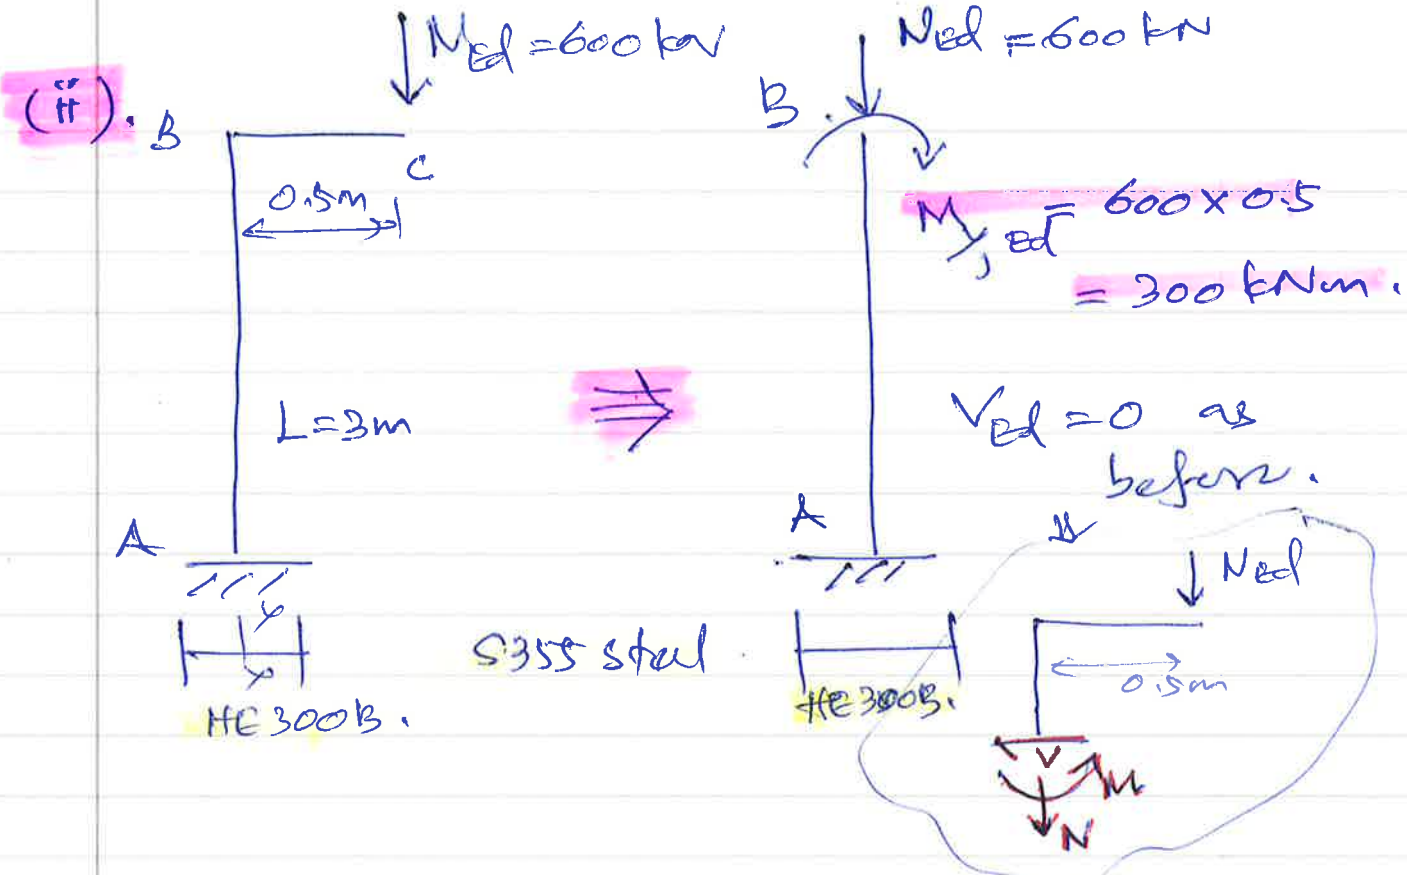 (ii).
NEd = 600 kN
B
C
0.5m
L=3m
A
y
y
HE 300B.
S355 steel
NEd = 600 kN
B
My,Ed = 600 x 0.5
= 300 kNm.
VEd = 0 as
before.
A
HE 300B.
NEd
0.5m
V
M
N